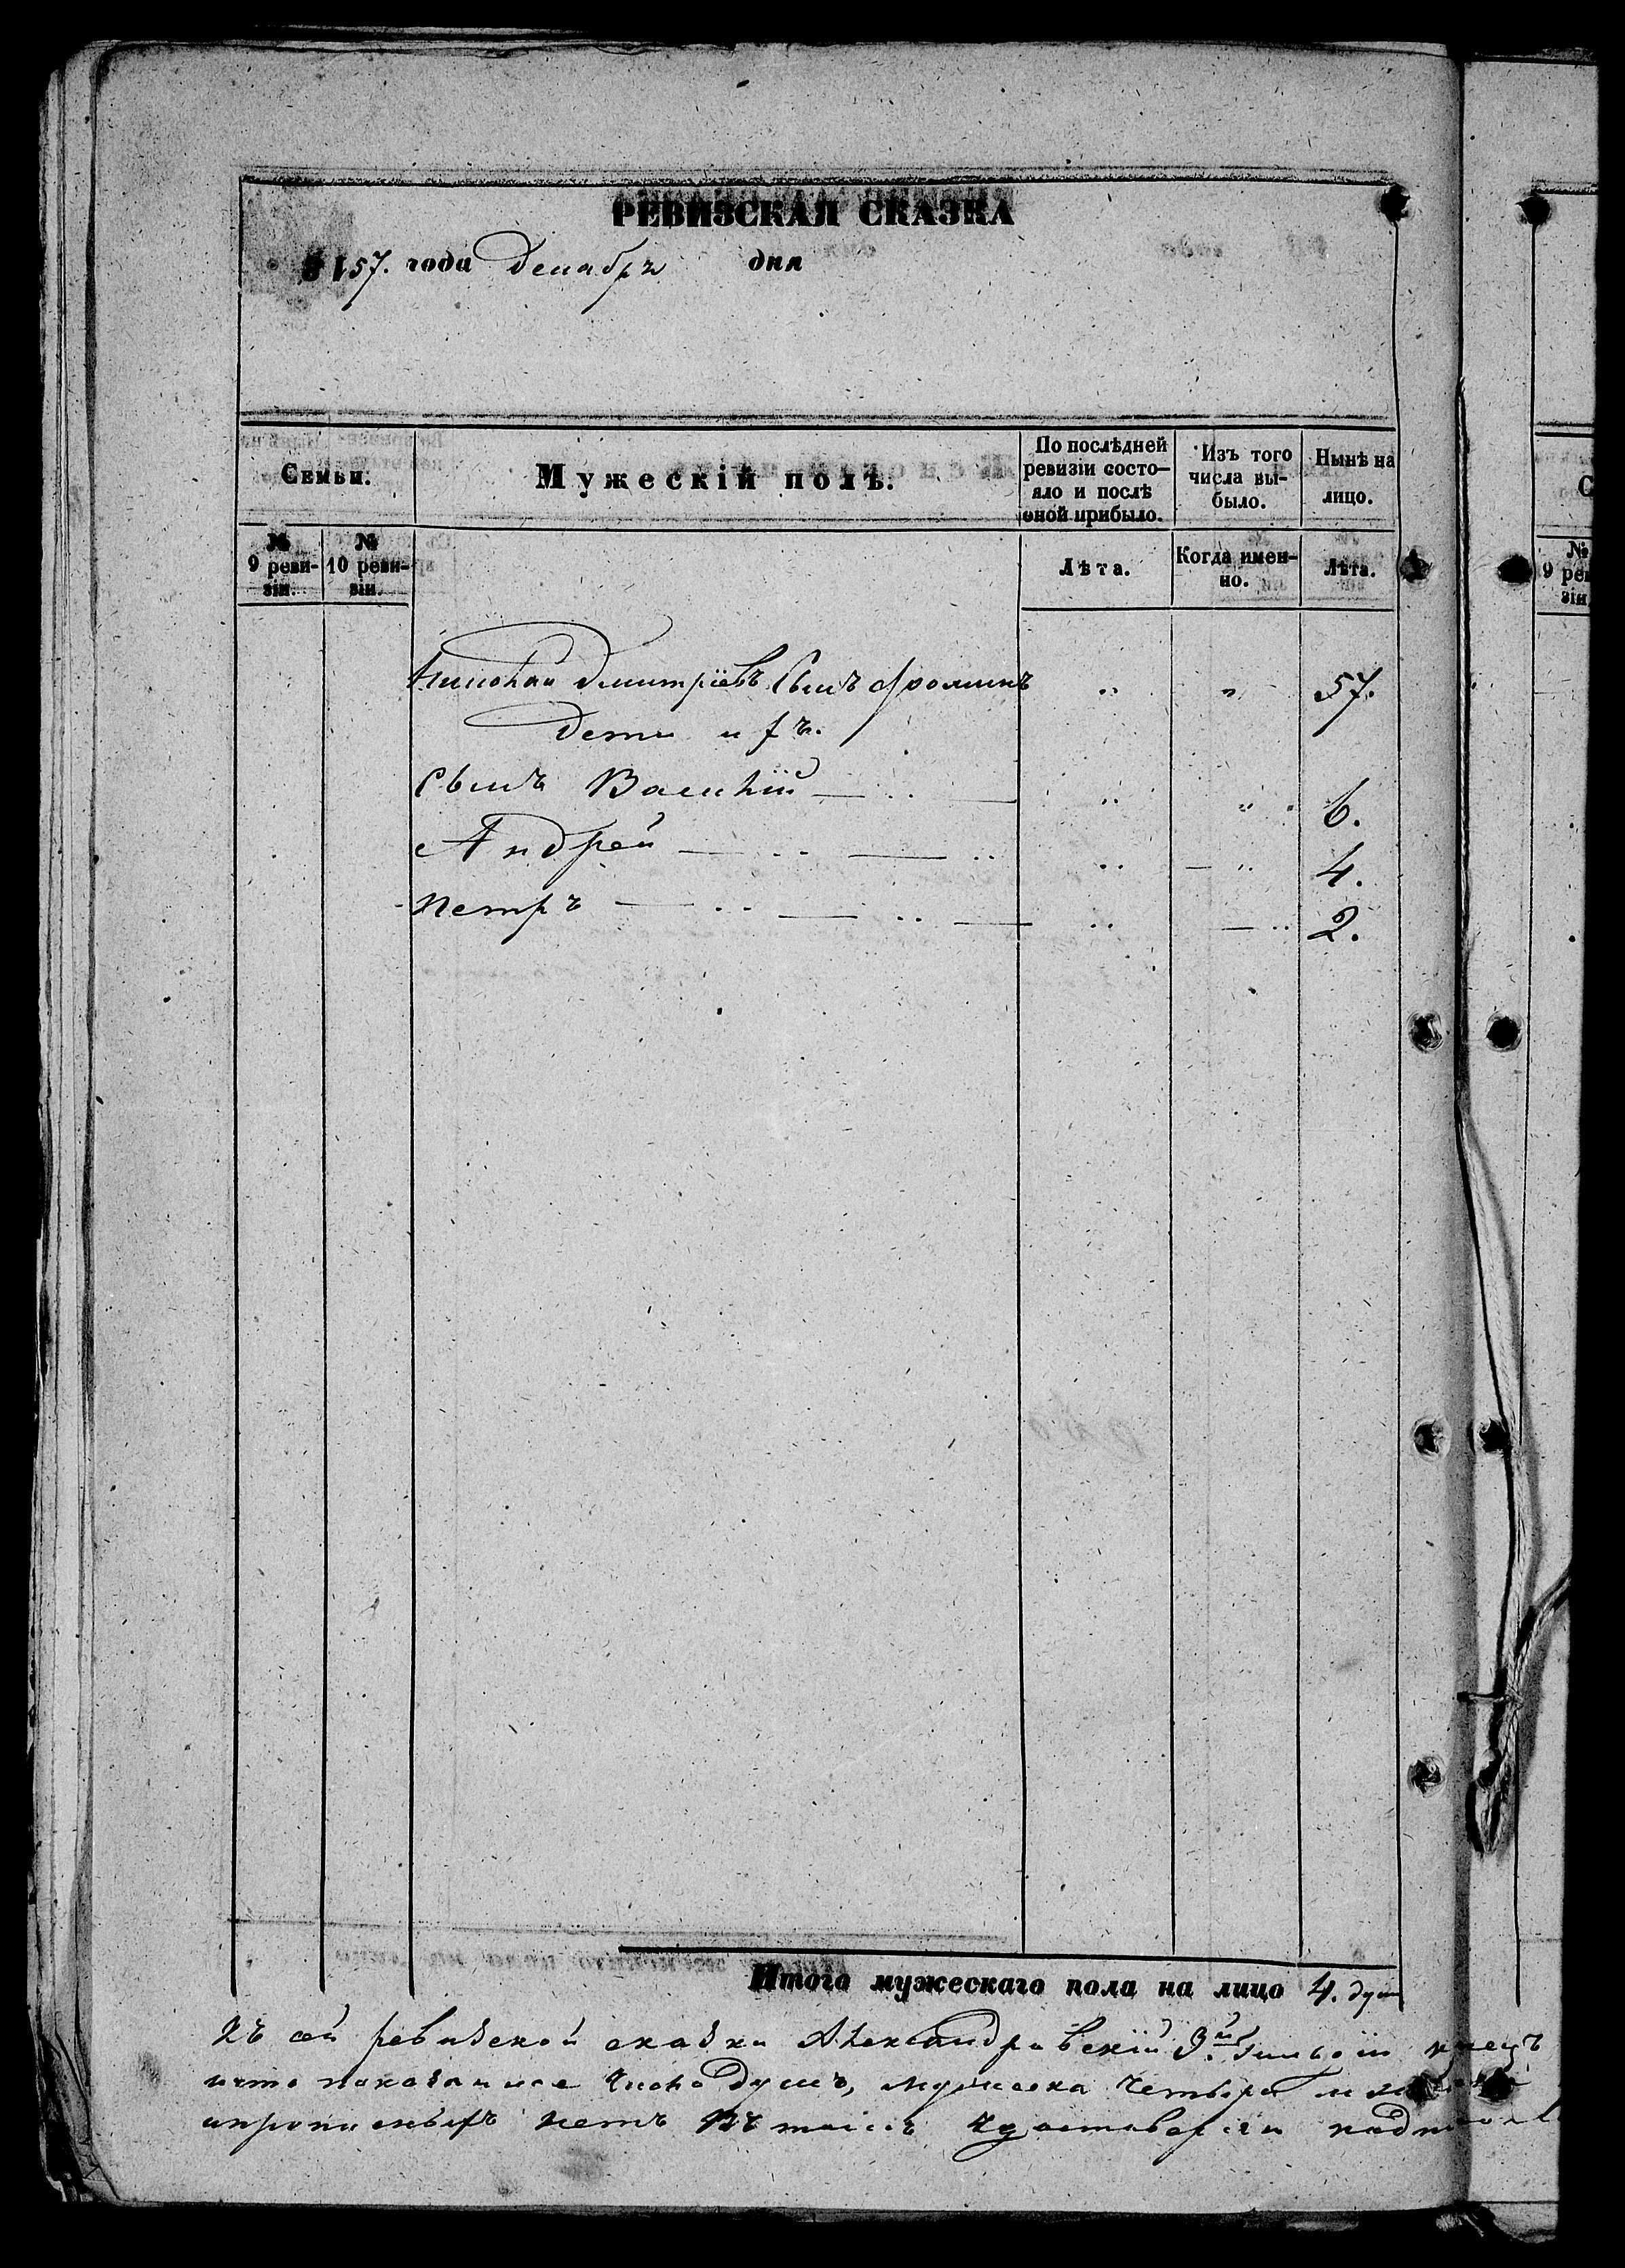 РЕВИЗСКАЯ СКАЗКА
57. года Декабрь дня
Семьи.
Мужескій полъ.
По послѣдней
ревизіи состо-
яло и послѣ
оной прибыло.
Изъ того
числа вы-
было.
Нынѣ на
лицо.
№
9 реви-
зіи.
№
10 реви-
зіи.
Лѣта.
Когда имен-
но.
Лѣта.
Николай Дмитріевъ Сынъ 57.
Дети ихъ.
Сынъ Василій 6.
Андрей 4.
Петръ 2.
Итого мужескаго пола на лицо 4. душ
Къ сей ревизской сказки Александровскій 3й гильдіи купецъ
что показанное число душъ, мужеска четыре и
прописныхъ нетъ въ томъ удостоверяю
№
9 рев
зіи